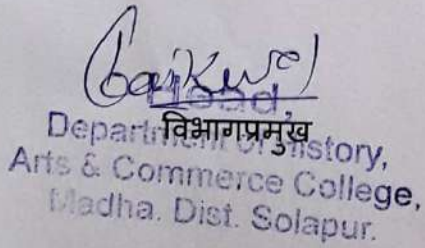 Head,
विभागप्रमुख
Department of History,
Arts & Commerce College,
Madha. Dist. Solapur.